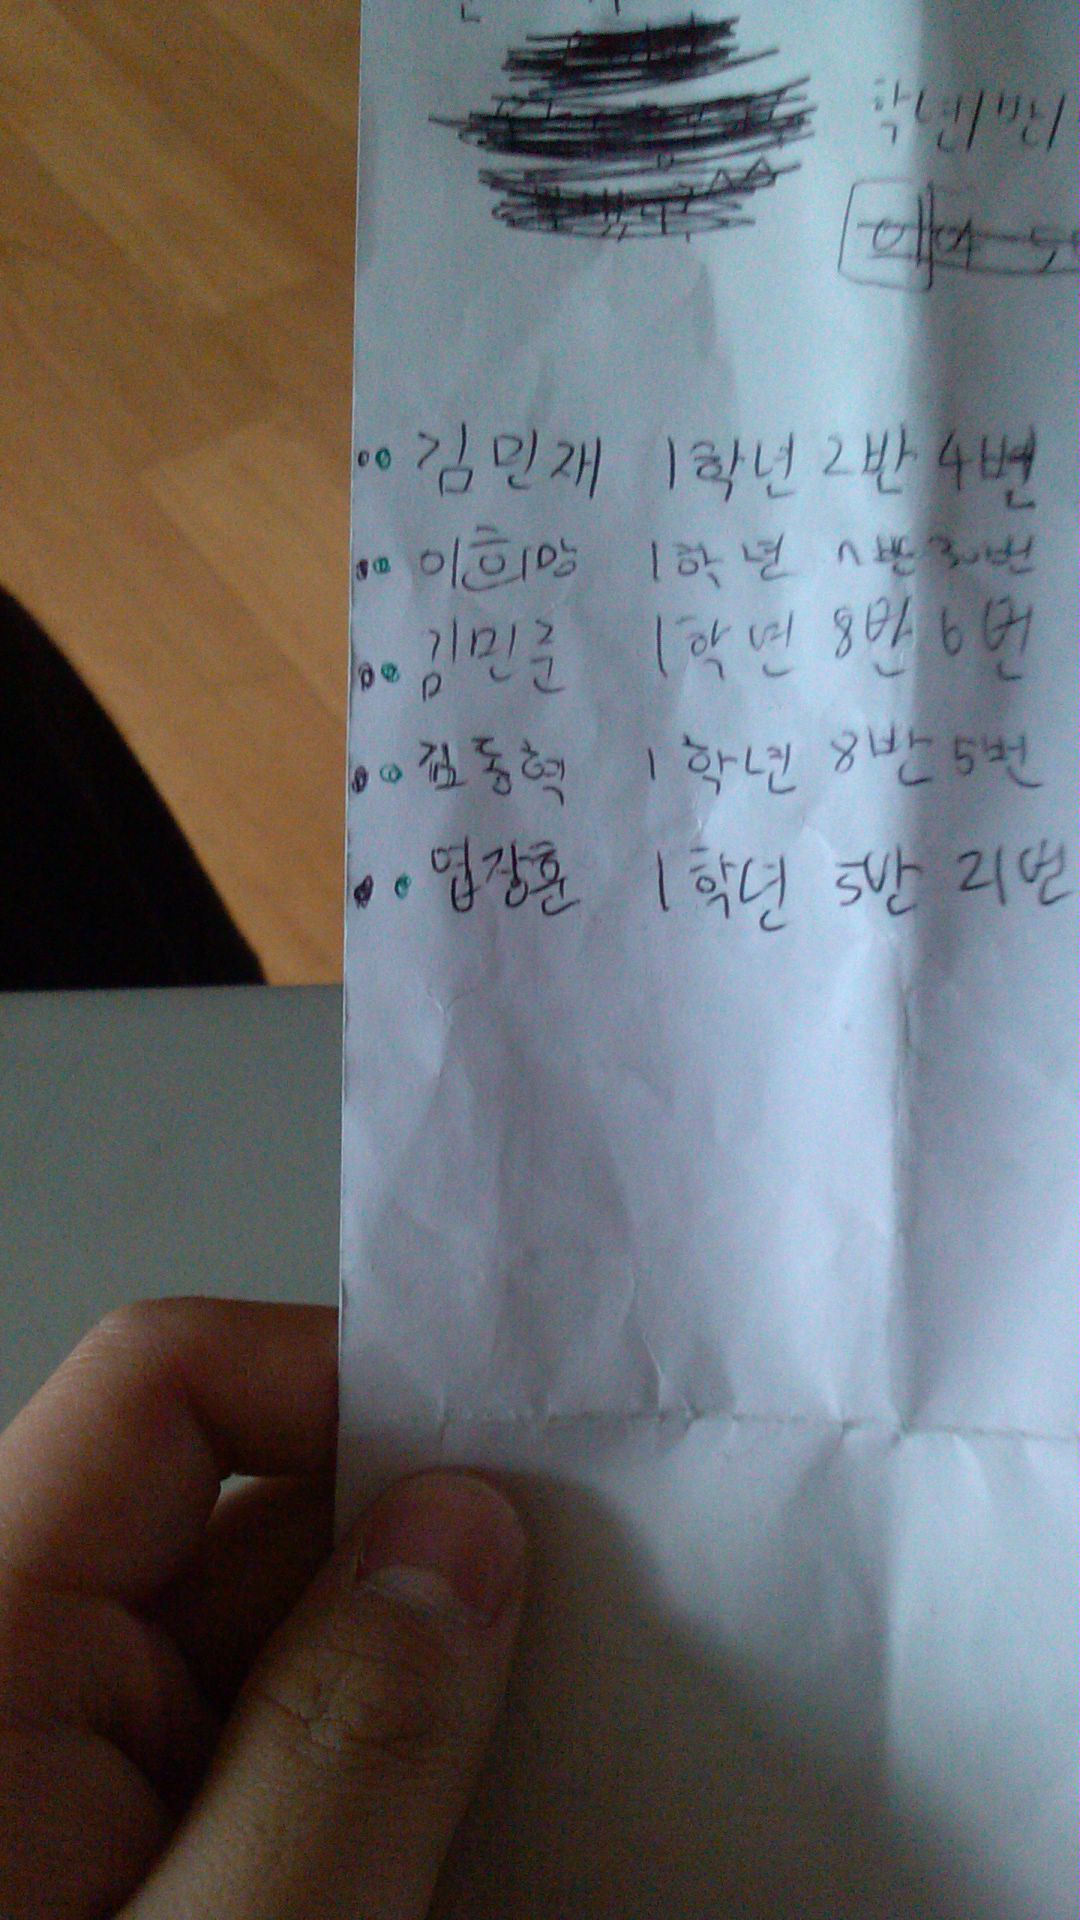 학년/반/
김민재 1학년 2반 4번
이희망 1학년 반 30번
김민준 1학년 8반 6번
김동혁 1학년 8반 5번
엽장훈 1학년 5반 21번